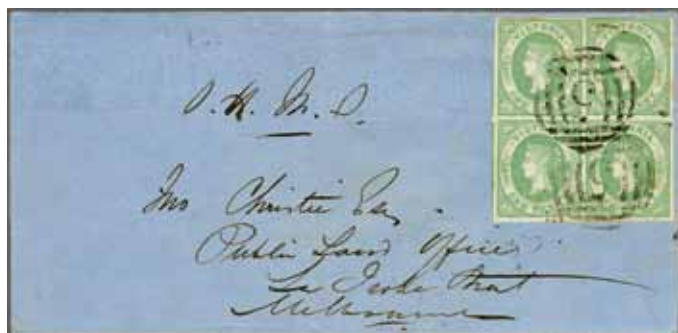 VICTORIA
O. H. M. S.
Jno Christie Esq
Public Land Office
La Trobe Street
Melbourne